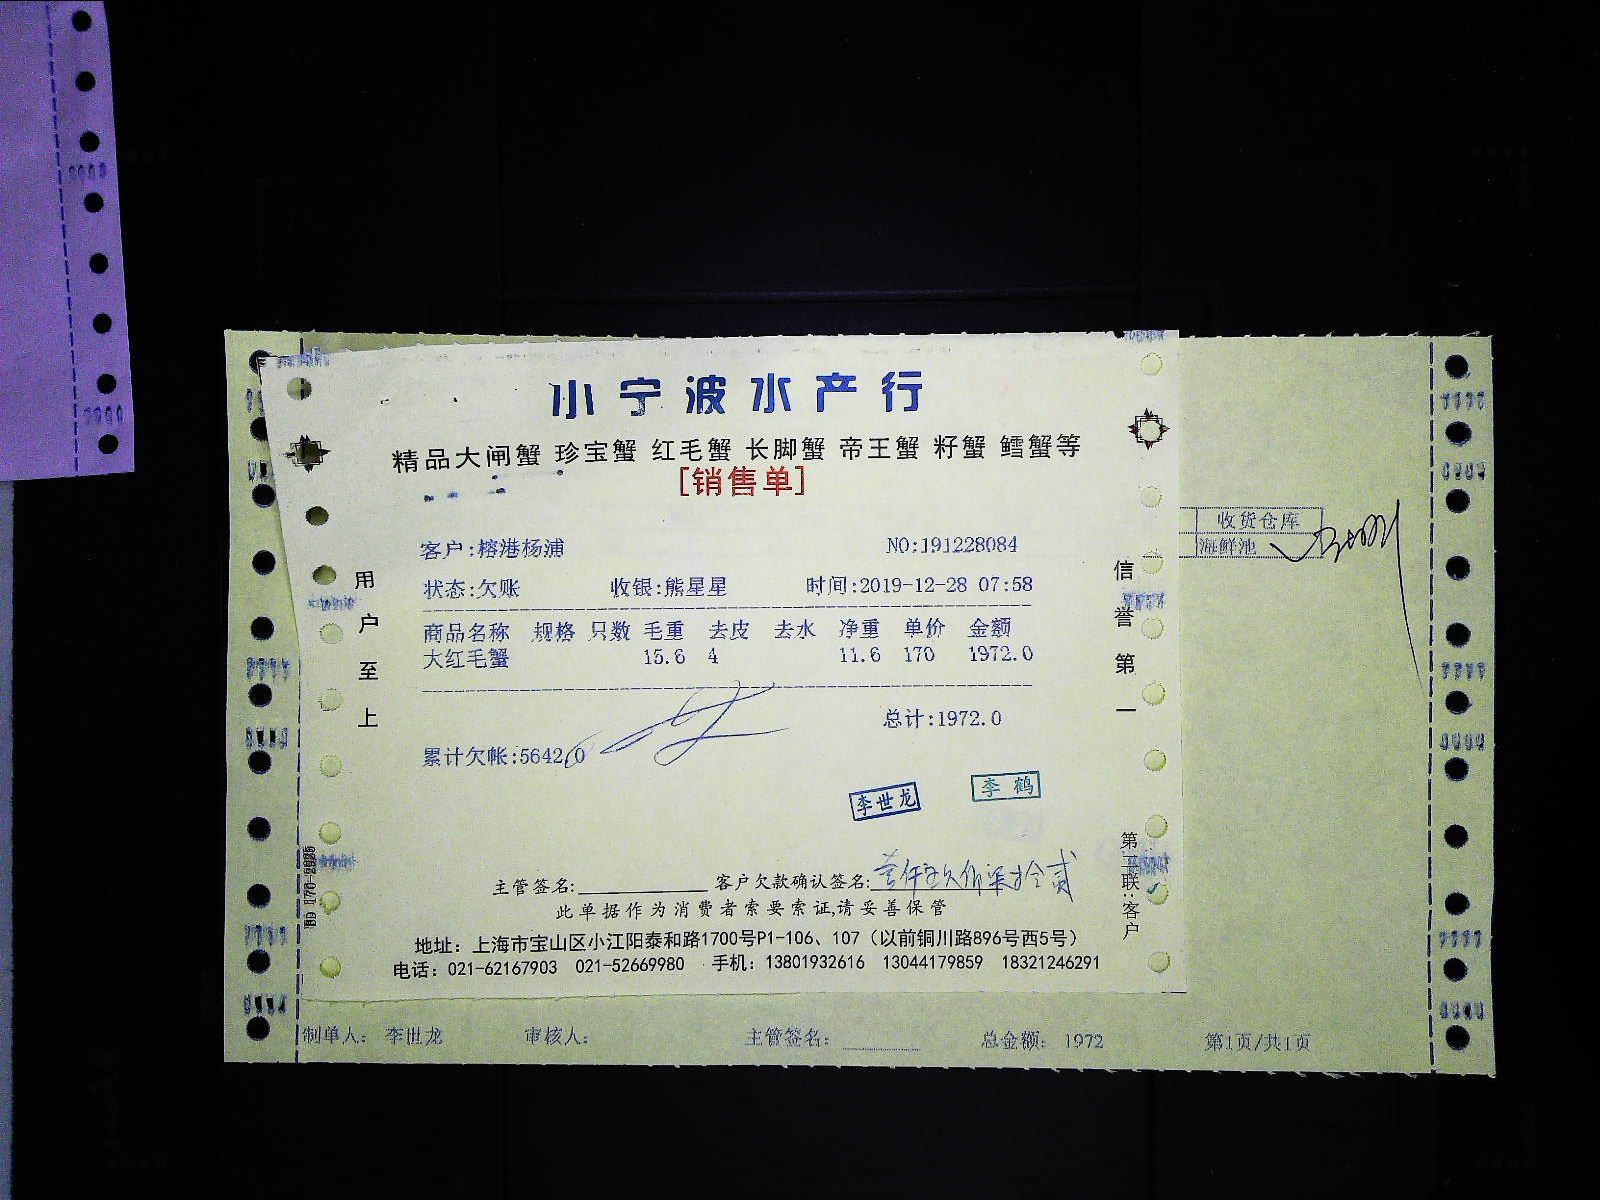 小宁波水产行
精品大闸蟹 珍宝蟹 红毛蟹 长脚蟹 帝王蟹 籽蟹 鳕蟹等
[销售单]
客户:榕港杨浦 NO:191228084
状态:欠账 收银:熊星星 时间:2019-12-28 07:58
商品名称 规格 只数 毛重 去皮 去水 净重 单价 金额
大红毛蟹 15.6 4 11.6 170 1972.0
总计:1972.0
累计欠帐:5642.0
李世龙 李鹤
主管签名: 客户欠款确认签名:壹仟玖佰柒拾贰
此单据作为消费者索要索证,请妥善保管
地址：上海市宝山区小江阳泰和路1700号P1-106、107（以前铜川路896号西5号）
电话：021-62167903 021-52669980 手机：13801932616 13044179859 18321246291
用户至上
信誉第一
第二联:客户
收货仓库
海鲜池
制单人： 李世龙 审核人： 主管签名： 总金额： 1972 第1页/共1页